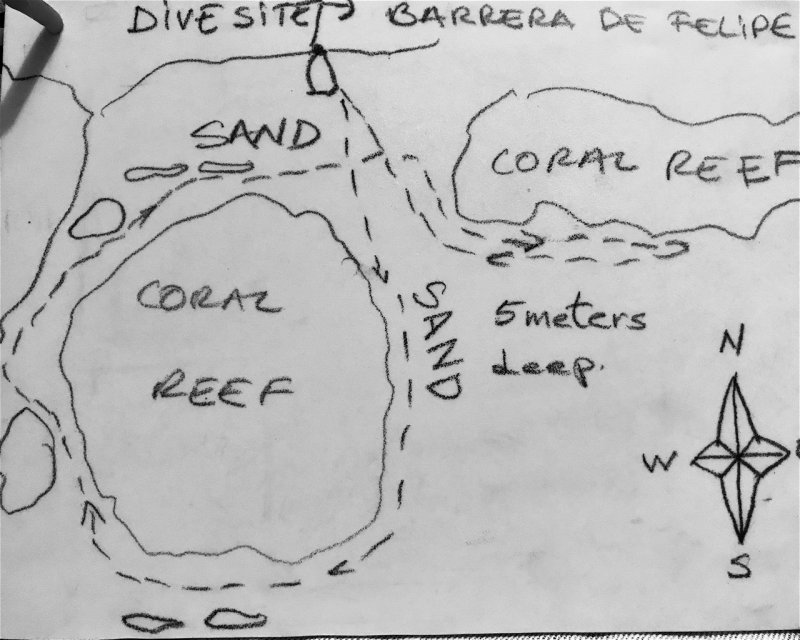 DIVE SITE BARRERA DE FELIPE
SAND
CORAL REEF
CORAL
REEF
SAND
5 meters
deep.
N
W
S